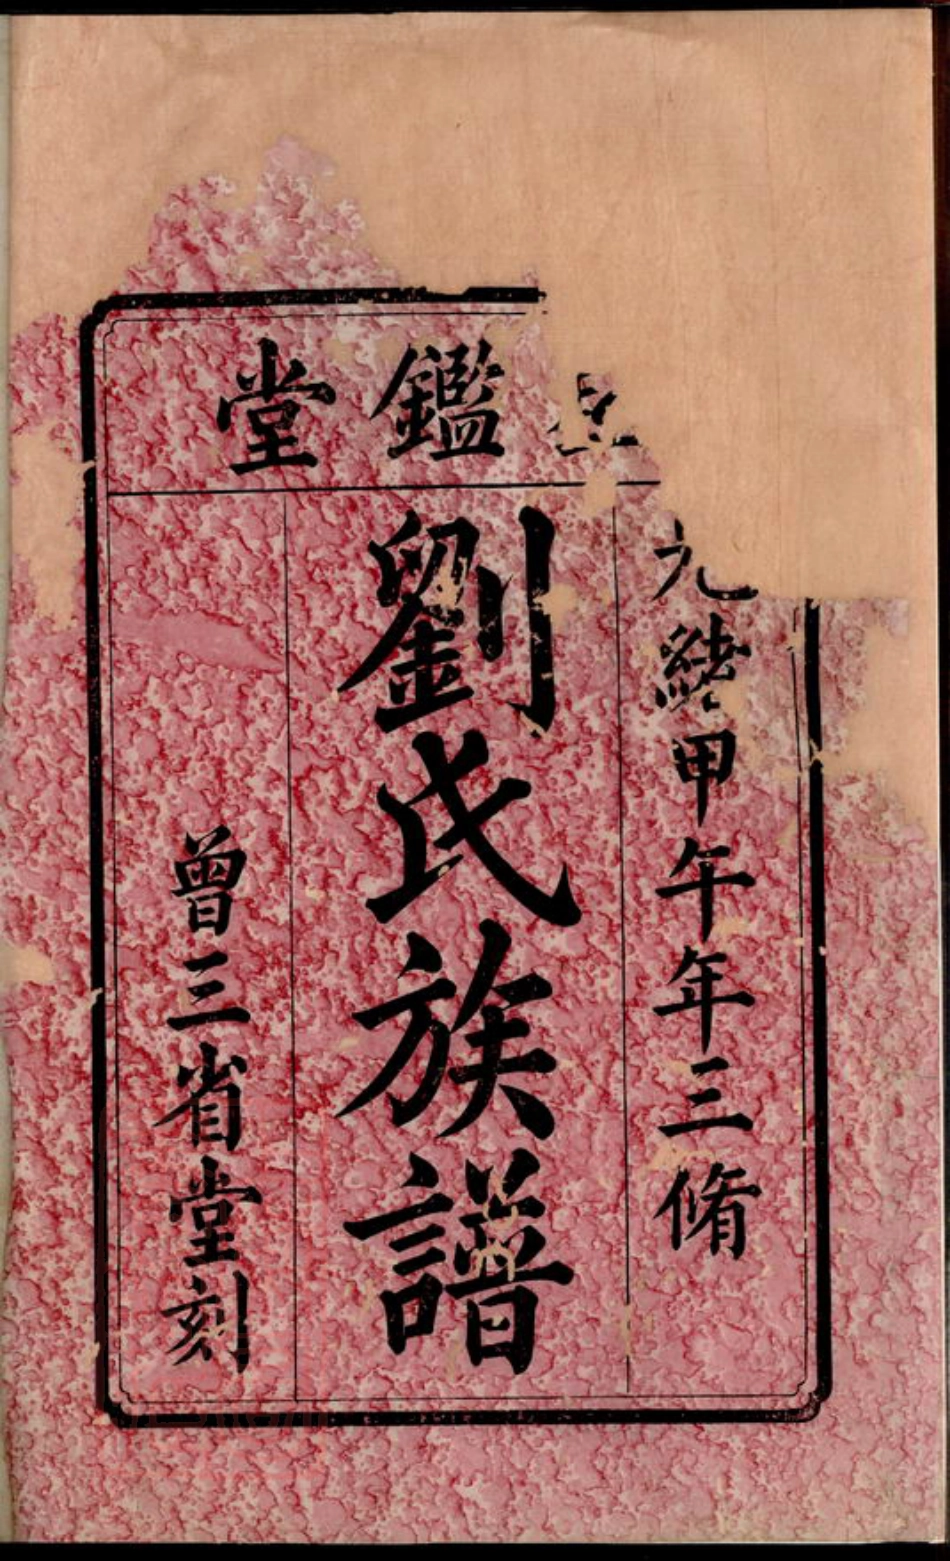 鑑堂
光緒甲午年三脩
劉氏族譜
曾三省堂刻